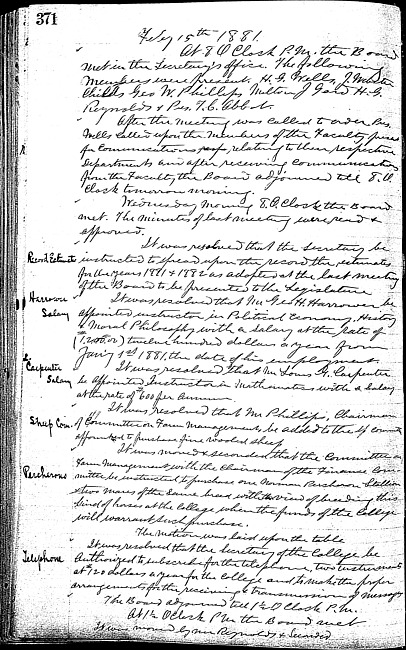 371
Feby 15th 1881.
At 8 O Clock P.M. the Board
met in the Secretary's office. The following
Members were present. H. G. Wells, J. Webster
Childs Geo W. Phillips Milton J Gard H. G.
Reynolds & Pres. T. C. Abbot.
After the meeting was called to order Pres.
Wells called upon the Members of the Faculty
for Communications relating to their respective
Departments and after receiving communications
from the Faculty the Board adjourned till 8. O.
Clock tomorrow morning.
Wednesday Morning 8 O. Clock the Board
met. The minutes of last meeting were read &
approved.
It was resolved that the Secretary be
Record Estimate instructed to spread upon the record the estimates
for the years 1881 & 1882 as adopted at the last meeting
of the Board to be presented to the Legislature
Harrower It was resolved that Mr Geo H. Harrower be
Salary appointed instructor in Political Economy, History
& Moral Philosophy with a salary at the rate of
(1,200.00) twelve hundred dollars a year from
Jany 1st 1881, the date of his employment.
Carpenter It was resolved that Mr Louis G. Carpenter
Salary be appointed Instructor in Mathematics with a Salary
at the rate of $600 per Annum.
It was resolved that Mr Phillips, Chairman
Sheep Com. of Committee on Farm Management, be added to the
appointed to purchase fine wooled sheep.
It was moved & seconded that the Committee on
Percherons Farm Management with the Chairman of the Finance Com-
mittee be instructed to purchase one Norman Percheron Stallion
& two mares of the same breed with the view of breeding this
kind of horses at the College when the funds of the College
will warrant such purchase.
The motion was laid upon the table
It was resolved that the Secretary of the College be
Telephone Authorized to subscribe for the telephone, two instruments
at $120 dollars a year for the College and to make the proper
arrangements for the receiving & transmission of messages
The Board adjourned till 1½ O Clock P.M.
At 1½ O Clock P.M. the Board met
It was moved by Mr Reynolds & Seconded